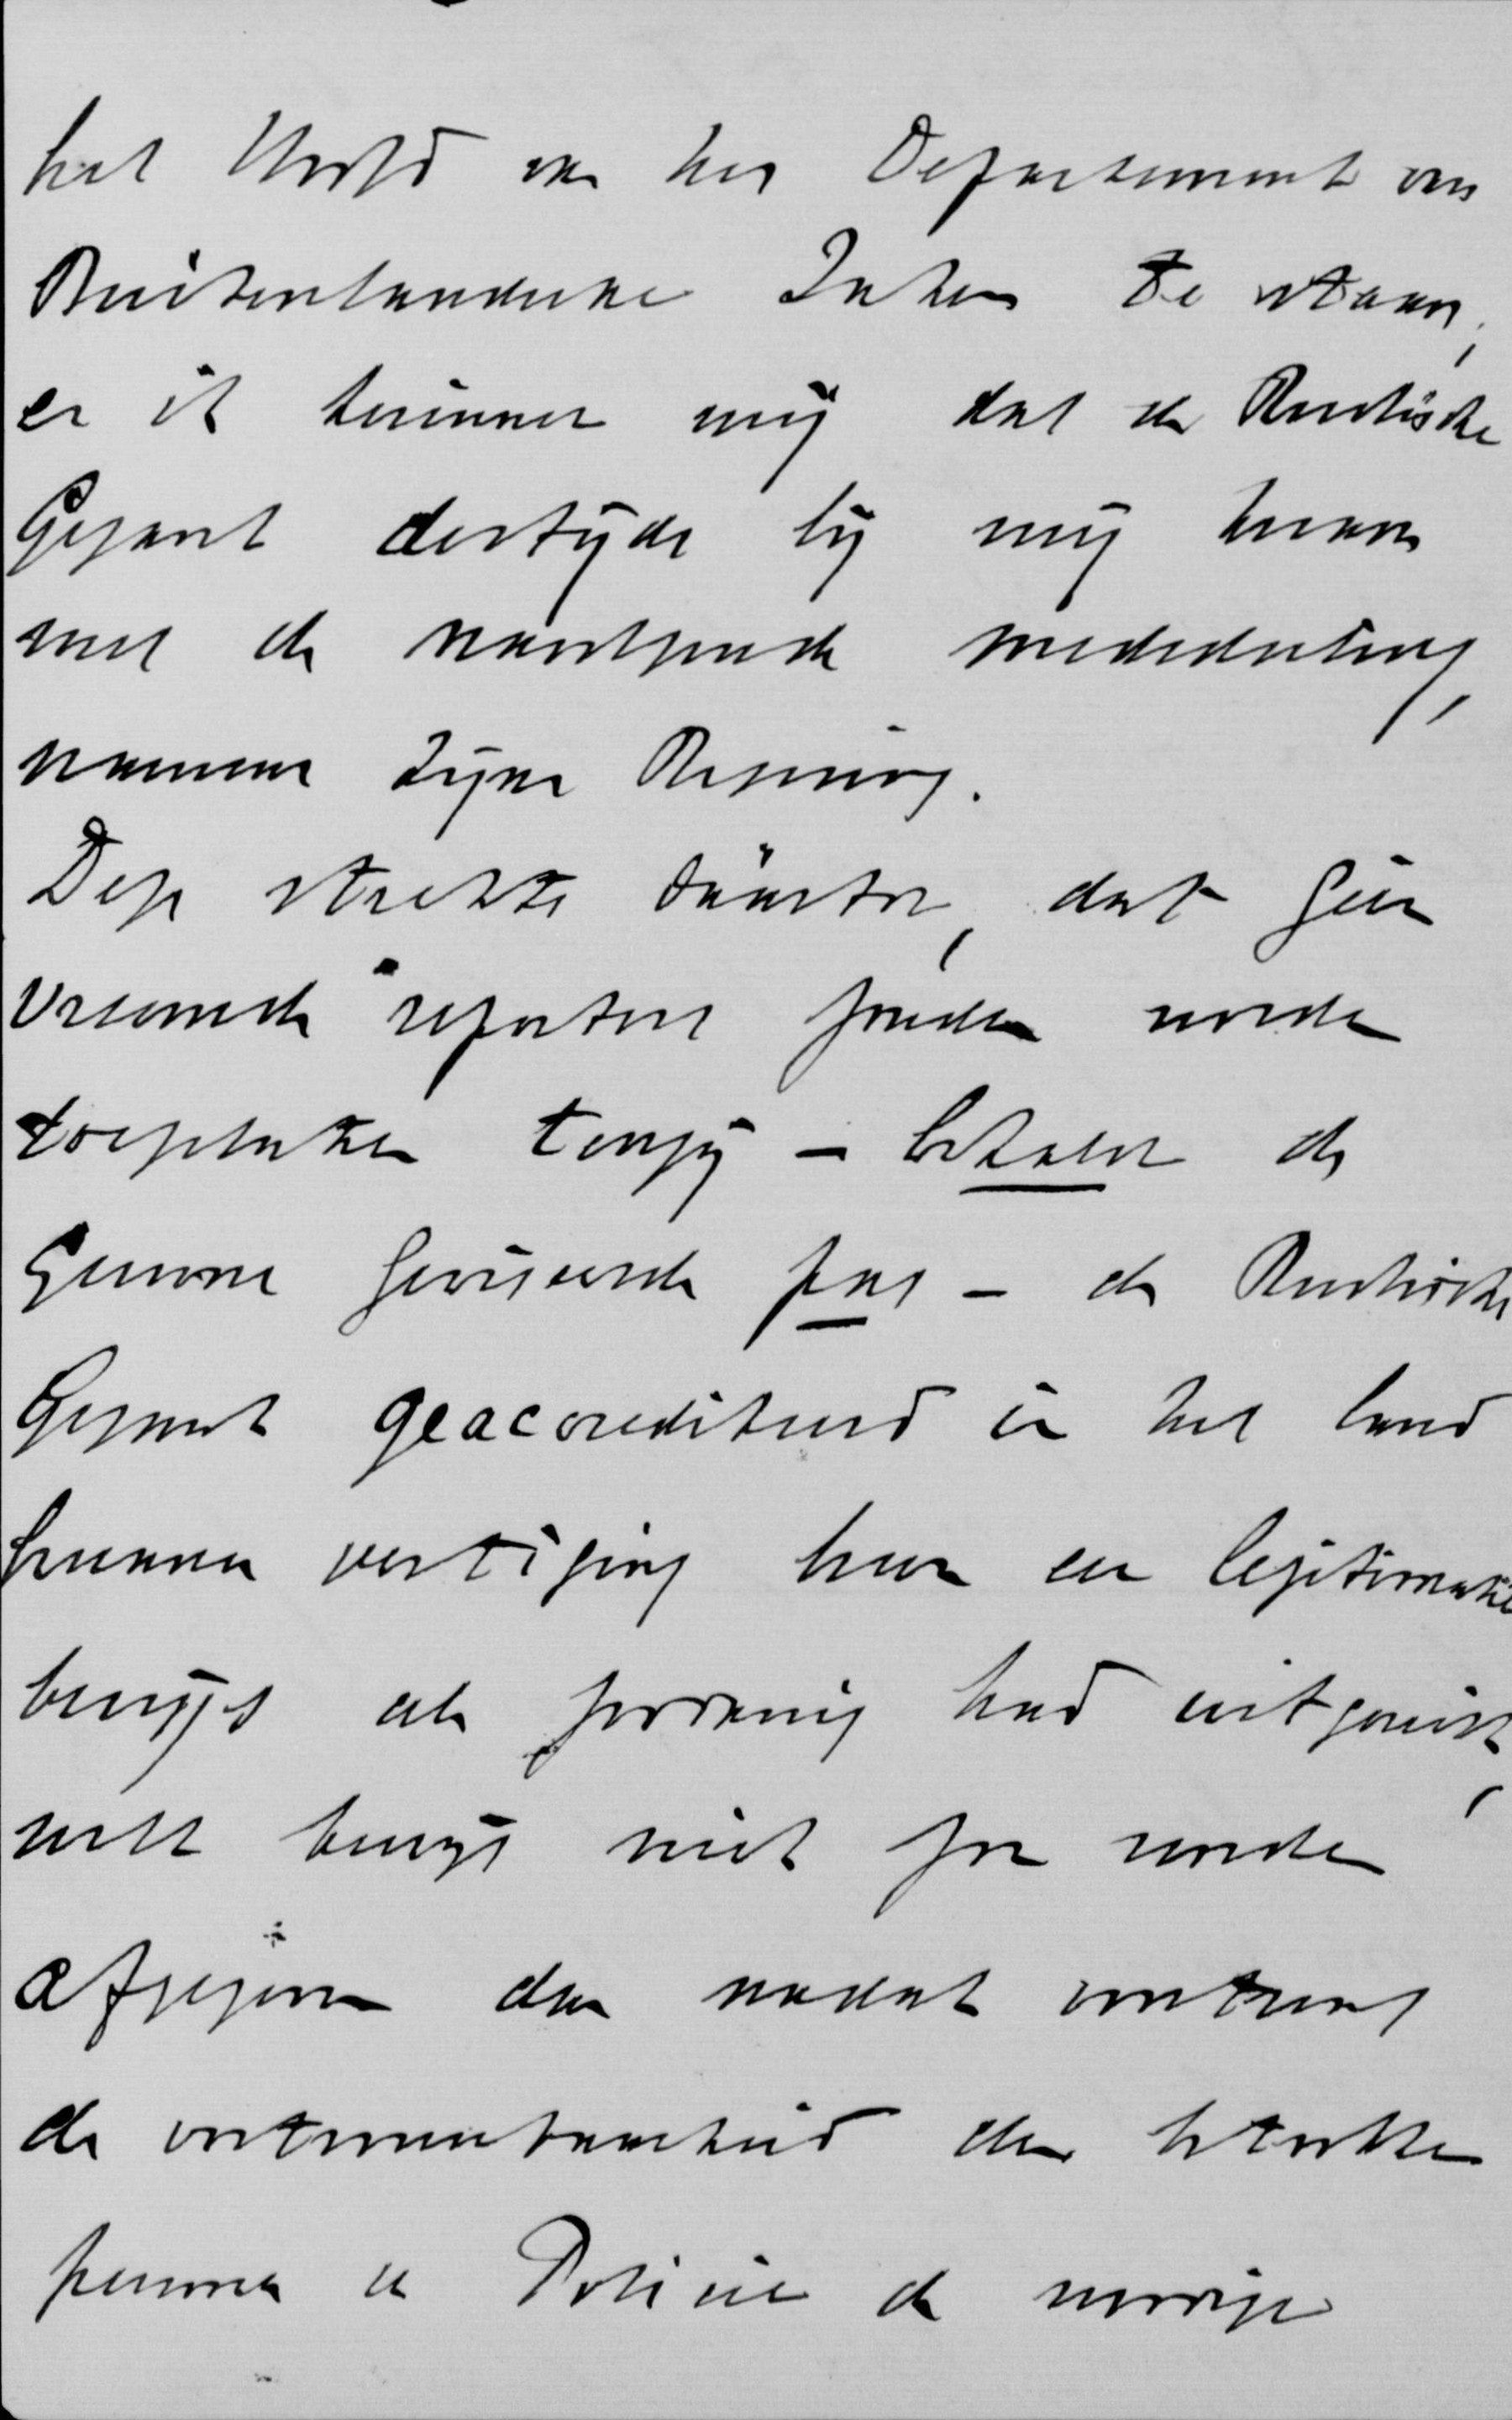 het Hoofd van het Departement van
Buitenlandsche Zaken te staan,
en ik herinner mij dat de Russische
Gezant destijds bij mij kwam
met de navolgende mededeeling,
namens zijne Regeering.
Deze strekte daartoe, dat geen
vreemde reporters zouden worden
toegelaten tenzij – behalve de
gewone geviseerde pas – de Russische
Gezant geaccrediteerd in het land
hunner vestiging hun een legitimatie
bewijs als zoodanig had uitgereikt,
welk bewijs niet zou worden
afgegeven dan nadat omtrent
de vertrouwbaarheid der betrokken
personen de Politie de noodige